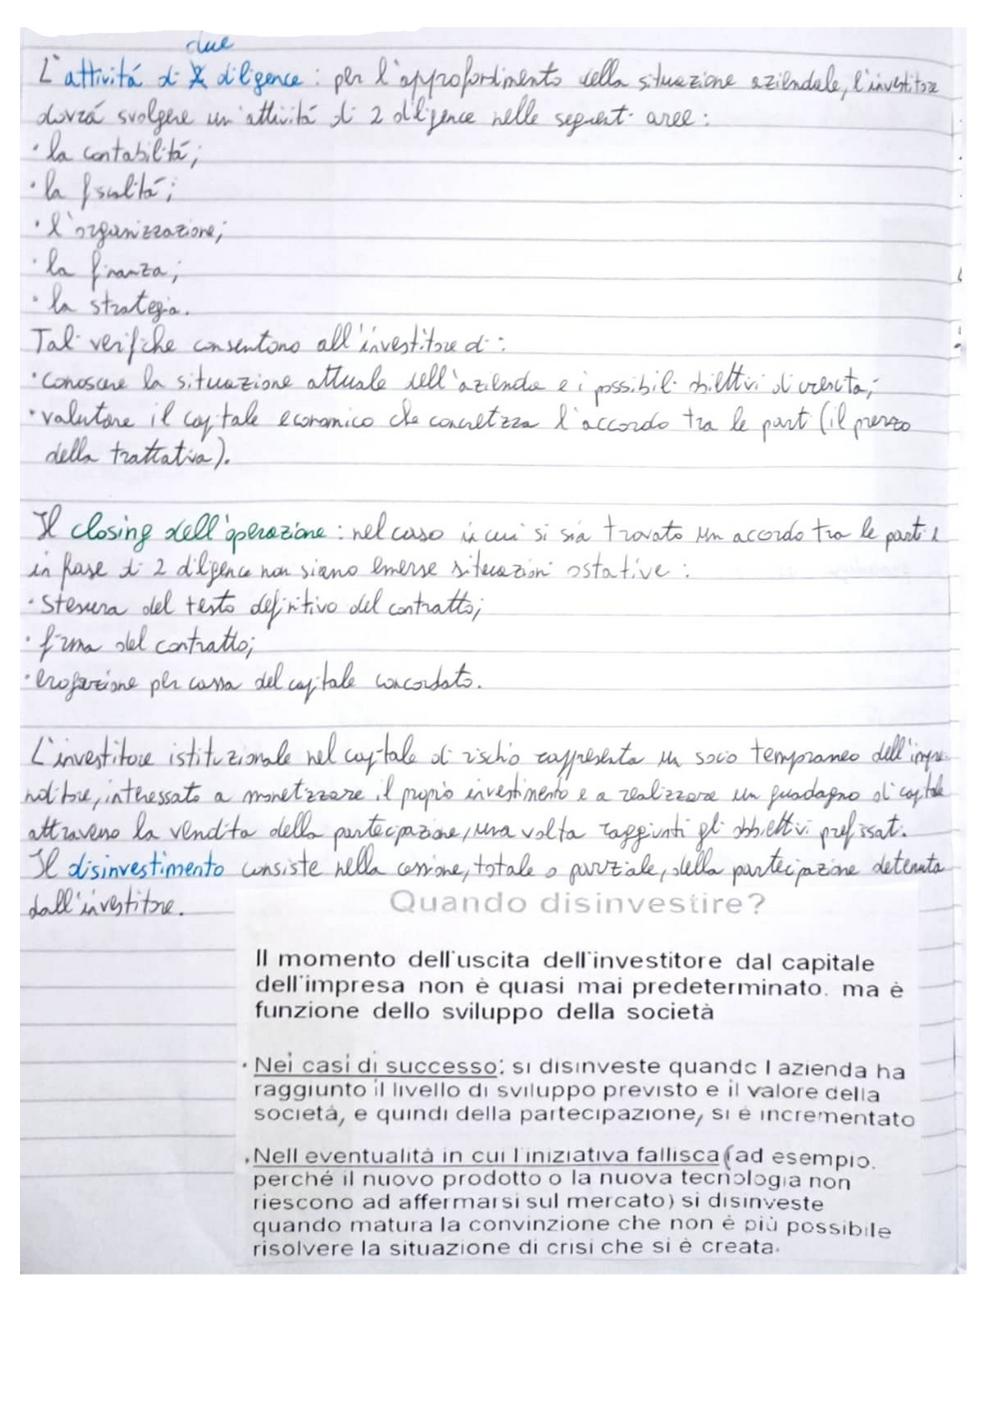 due
L'attività di diligence: per l'approfondimento della situazione aziendale, l'investitore
dovrà svolgere un'attività di 2 diligence nelle seguenti aree:
• la contabilità;
• la fiscalità;
• l'organizzazione;
• la finanza;
• la strategia.
Tali verifiche consentono all'investitore di:
• conoscere la situazione attuale dell'azienda e i possibili obiettivi di crescita;
• valutare il capitale economico che concretizza l'accordo tra le parti (il prezzo
della trattativa).
Il closing dell'operazione: nel caso in cui si sia trovato un accordo tra le parti e
in fase di 2 diligence non siano emerse situazioni ostative:
• stesura del testo definitivo del contratto;
• firma del contratto;
• erogazione per cassa del capitale concordato.
L'investitore istituzionale nel capitale di rischio rappresenta un socio temporaneo dell'impre-
nditore, interessato a monetizzare il proprio investimento e a realizzare un guadagno di capitale
attraverso la vendita della partecipazione, una volta raggiunti gli obbiettivi prefissati.
Il disinvestimento consiste nella cessione, totale o parziale, della partecipazione detenuta
dall'investitore.
Quando disinvestire?
Il momento dell'uscita dell'investitore dal capitale
dell'impresa non è quasi mai predeterminato. ma è
funzione dello sviluppo della società
• Nei casi di successo: si disinveste quando l azienda ha
raggiunto il livello di sviluppo previsto e il valore della
società, e quindi della partecipazione, si è incrementato
• Nell eventualità in cui l'iniziativa fallisca (ad esempio.
perché il nuovo prodotto o la nuova tecnologia non
riescono ad affermarsi sul mercato) si disinveste
quando matura la convinzione che non è più possibile
risolvere la situazione di crisi che si è creata.